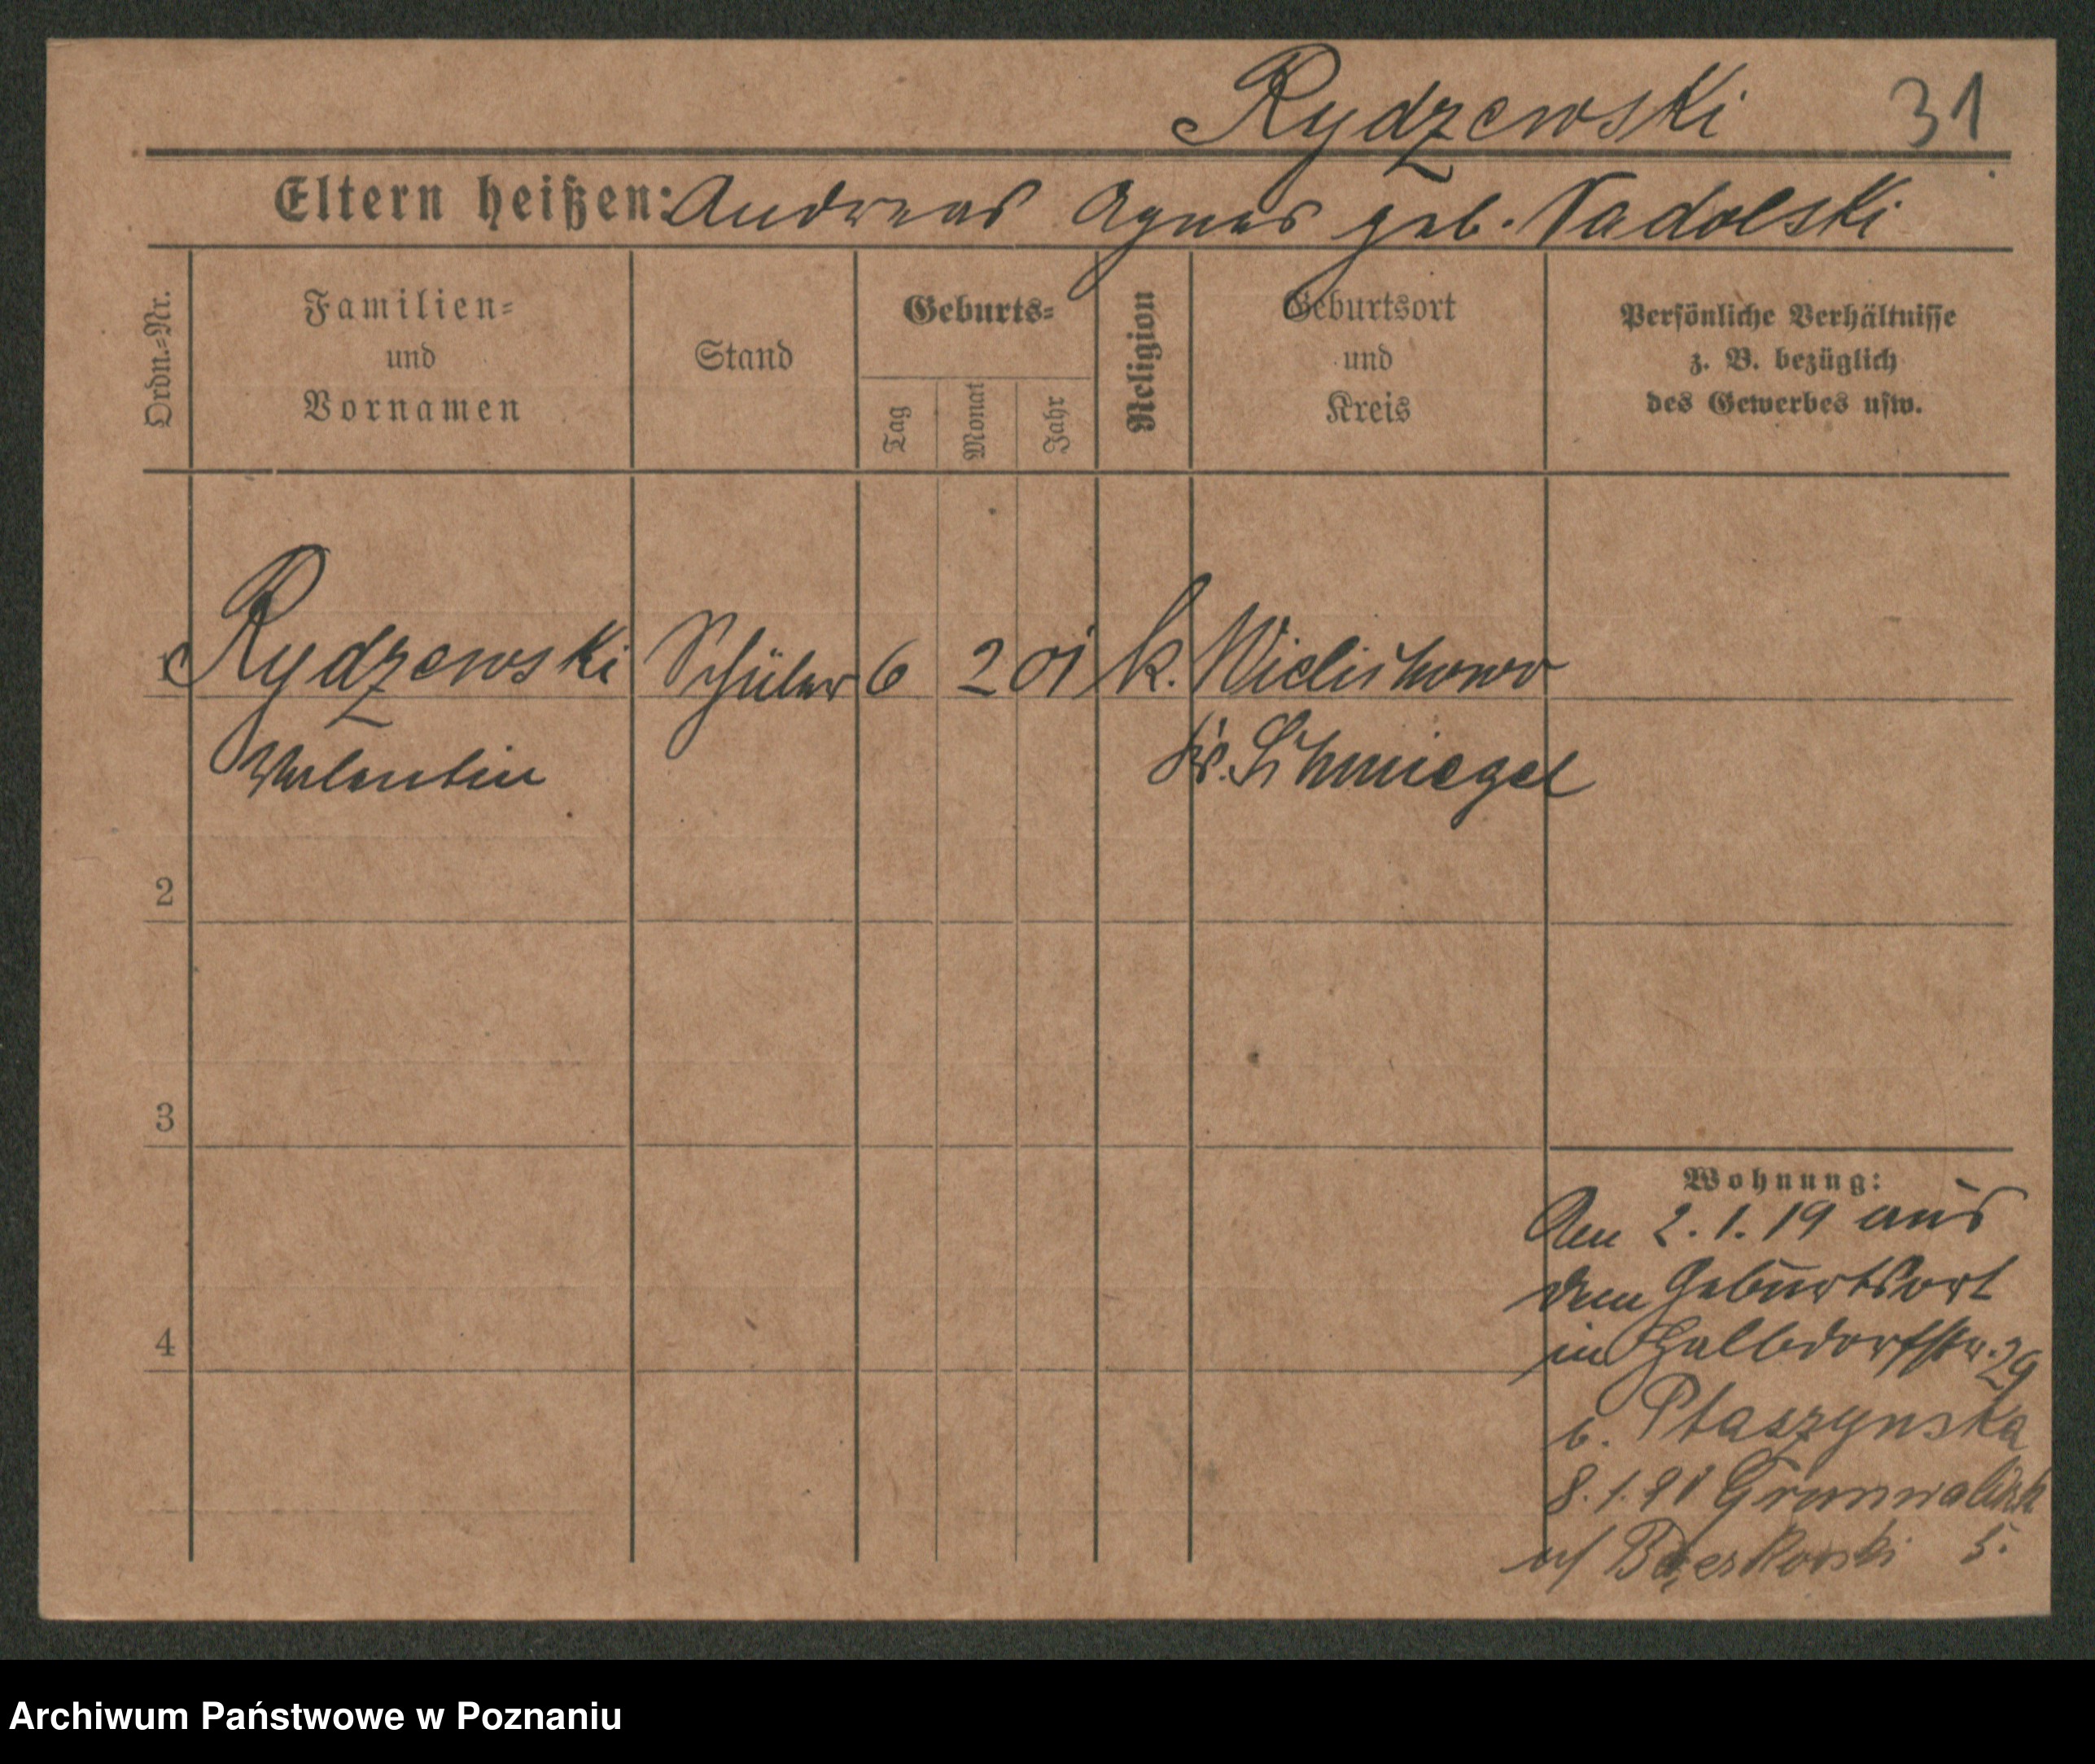 Rydzewski 31
Eltern heißen: Andreas Agnes geb. Nadolski
Ordn.=Nr.
Familien=
und
Vornamen
Stand
Geburts=
Tag
Monat
Jahr
Religion
Geburtsort
und
Kreis
Persönliche Verhältnisse
z. B. bezüglich
des Gewerbes usw.
1 Rydzewski Schüler 6 2 01 k. Wielichowo
Valentin Kr. Schmiegel
2
3
4
Wohnung:
Am 2.1.19 aus
dem Geburtsort
in Halbdorfstr. 29
b. Ptaszynska
8.1.
5.
Archiwum Państwowe w Poznaniu